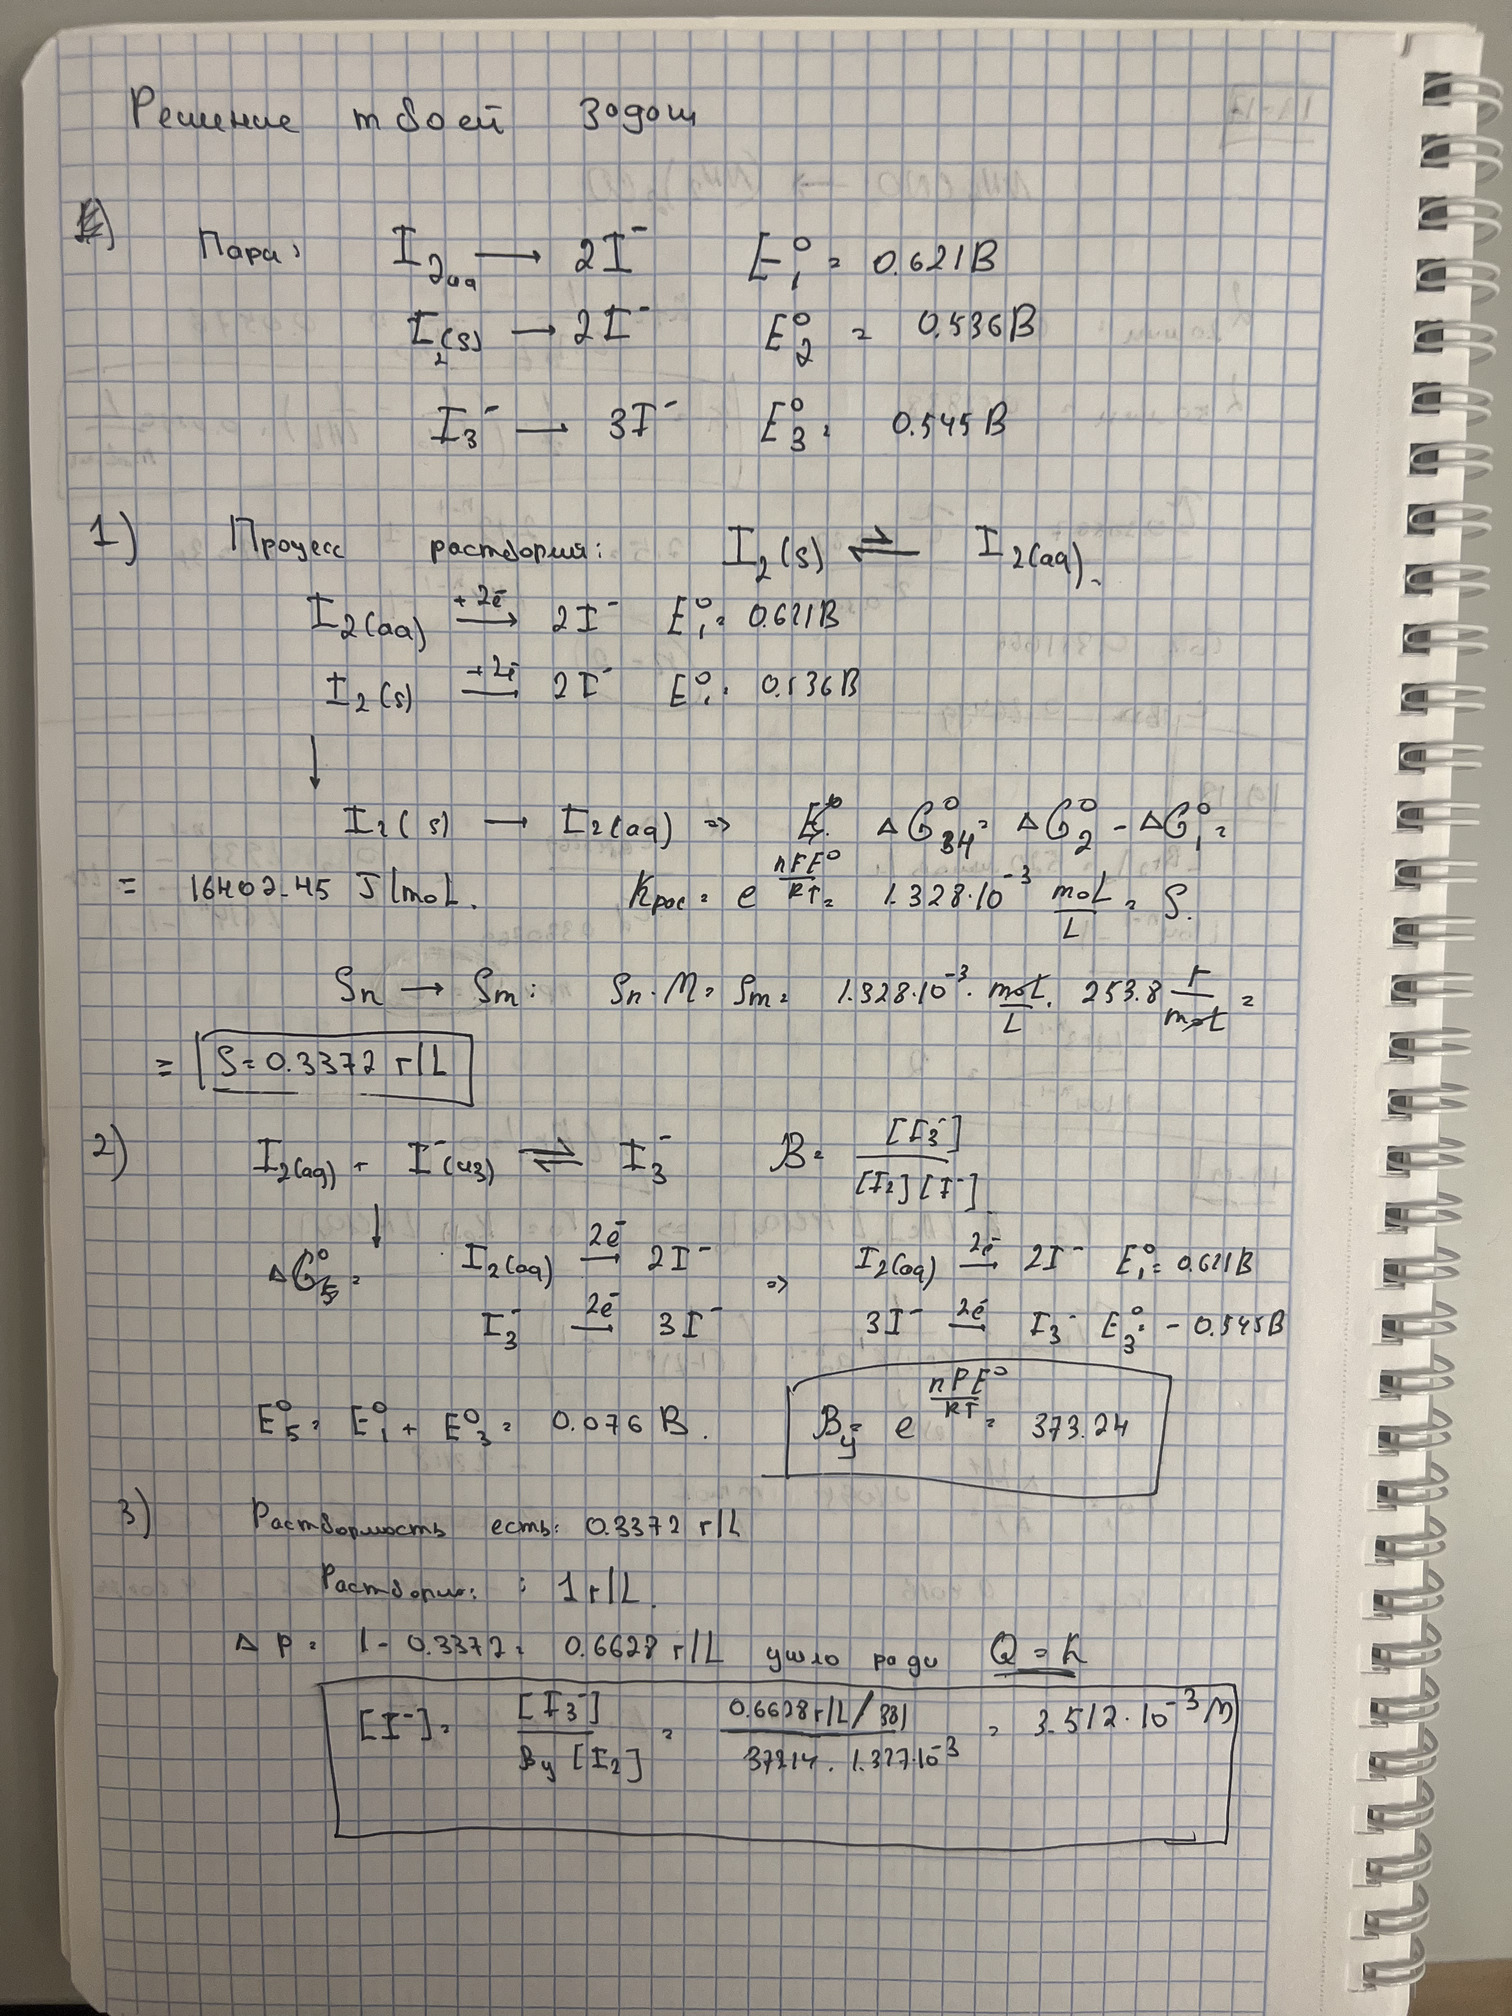 Решение твоей задачи
Пара: I₂aq → 2I⁻ E₁⁰ = 0.621 В
I₂(s) → 2I⁻ E₂⁰ = 0.536 В
I₃⁻ → 3I⁻ E₃⁰ = 0.545 В
1) Процесс растворния: I₂(s) ⇌ I₂(aq).
I₂(aq) +2ē → 2I⁻ E₁⁰ = 0.621 В
I₂(s) +2ē → 2I⁻ E₁⁰ = 0.536 В
↓
I₂(s) → I₂(aq) ⇒ ΔG₃₄⁰ = ΔG₂⁰ - ΔG₁⁰ =
= 16402.45 J/moL. Kрас = e^(nFE⁰/RT) = 1.328·10⁻³ moL/L = S.
Sn → Sm: Sn·M = Sm = 1.328·10⁻³ · moL/L · 253.8 г/moL =
= S = 0.3372 г/L
2) I₂(aq) + I⁻(из) ⇌ I₃⁻ β = [I₃⁻]/[I₂][I⁻]
↓
ΔG₅⁰ = I₂(aq) 2ē → 2I⁻ ⇒ I₂(aq) 2ē → 2I⁻ E₁⁰ = 0.621 В
I₃⁻ 2ē → 3I⁻ 3I⁻ 2ē → I₃⁻ E₃⁰ = -0.545 В
E₅⁰ = E₁⁰ + E₃⁰ = 0.076 В. βу = e^(nFE⁰/RT) = 373.24
3) Раствормость есть: 0.3372 г/L
Раствори: : 1 г/L.
Δp = 1 - 0.3372 = 0.6628 г/L ушло ради Q = K
[I⁻] = [I₃⁻]/βу [I₂] = 0.6628 г/L / 381 / 37214 · 1.327·10⁻³ = 3.512·10⁻³ M